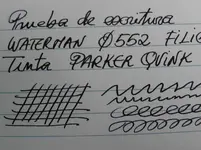 Prueba de escritura
WATERMAN Ø552 FILIG
Tinta PARKER QUINK